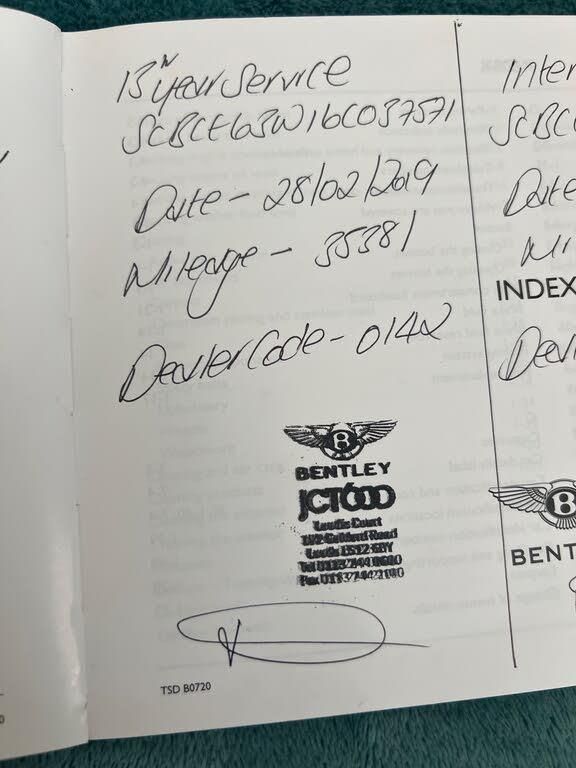 13th year Service
SCBCE63W16C037571
Date - 28/02/2019
Mileage - 35381
Dealer Code - 0142
B
BENTLEY
JCT600
Leeds Court
Gelderd Road
Leeds LS12 6BY
Tel 0113
Fax 0113
TSD B0720
Inter
SCBC
Date
Mi
INDEX
Deal
B
BENT